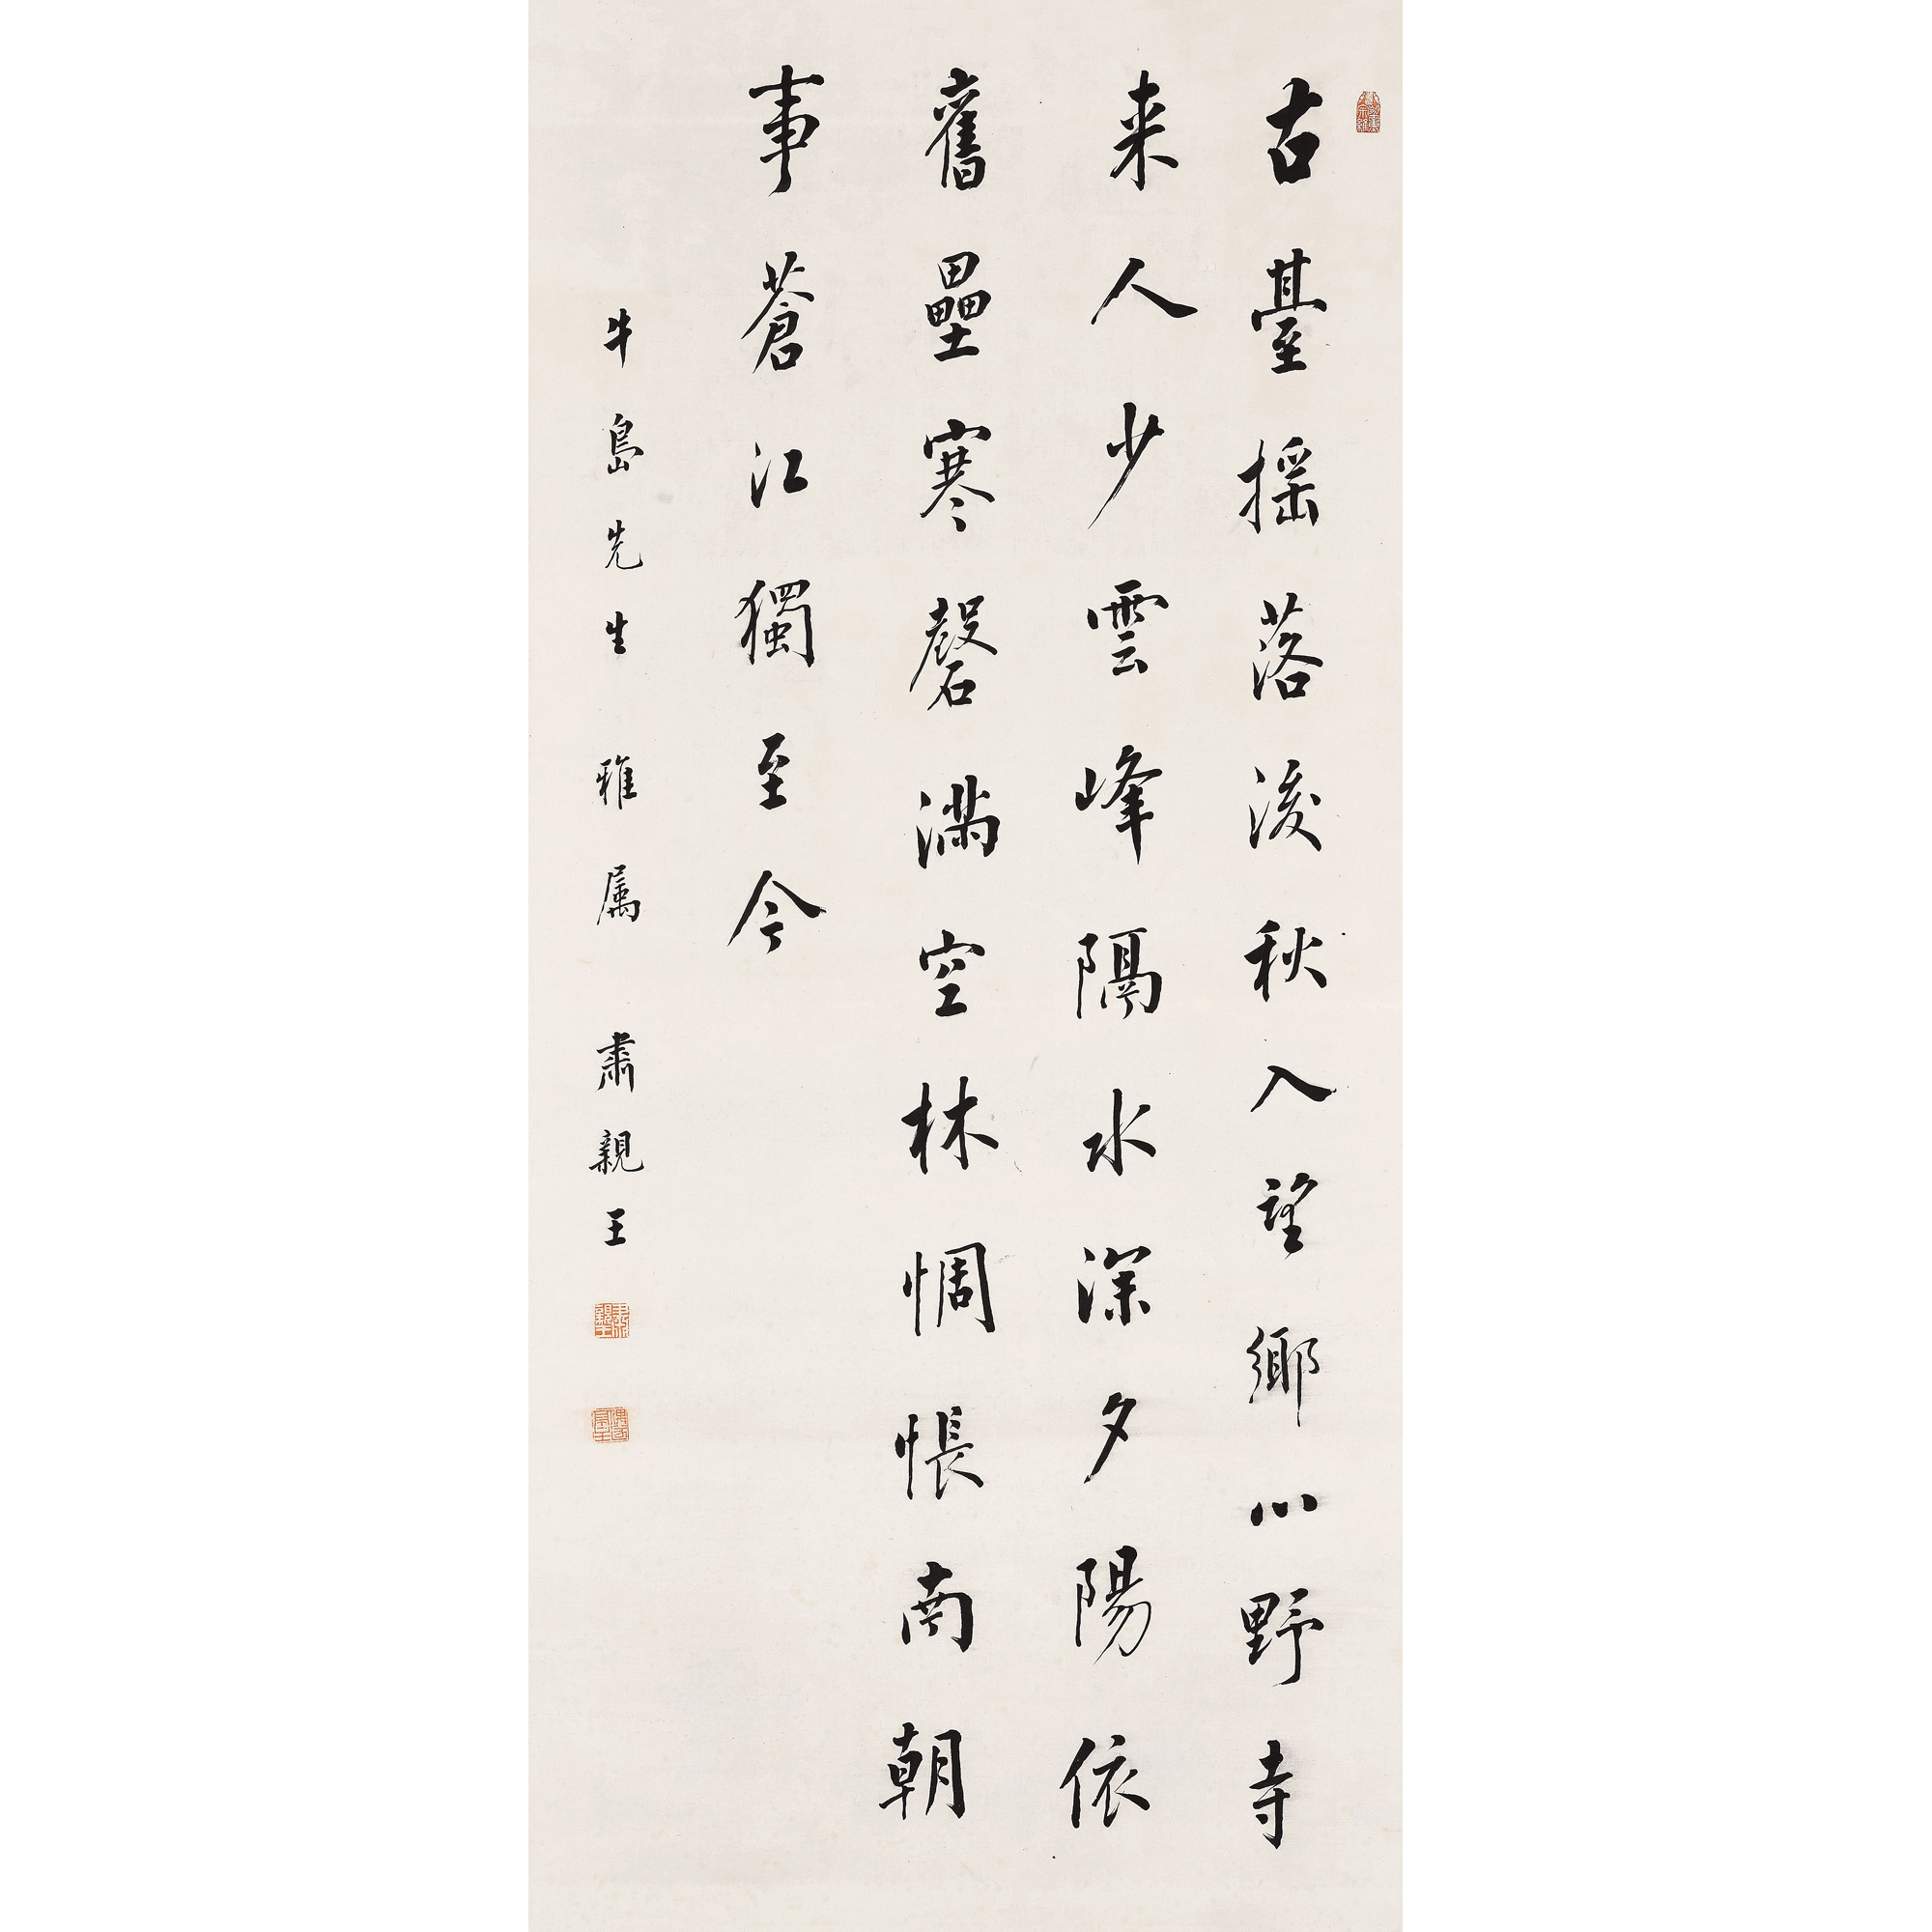 古臺揺落後秋入望鄉心野寺
来人少雲峰隔水深夕陽依
舊壘寒磬滿空林惆悵南朝
事蒼江獨至今
牛島先生 雅属 肅親王